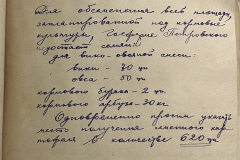 Для обсеменения всей площади,
запланированной под кормовые
культуры, Госферме Петровского
недостает семян:
для вико-овсяной смеси:
вики - 30 цн
овса - 50 цн
кормового бурака - 2 цн.
кормового арбуза - 30 кг.
Одновременно просим указать
место получения кар
тофеля в количестве 620 цн